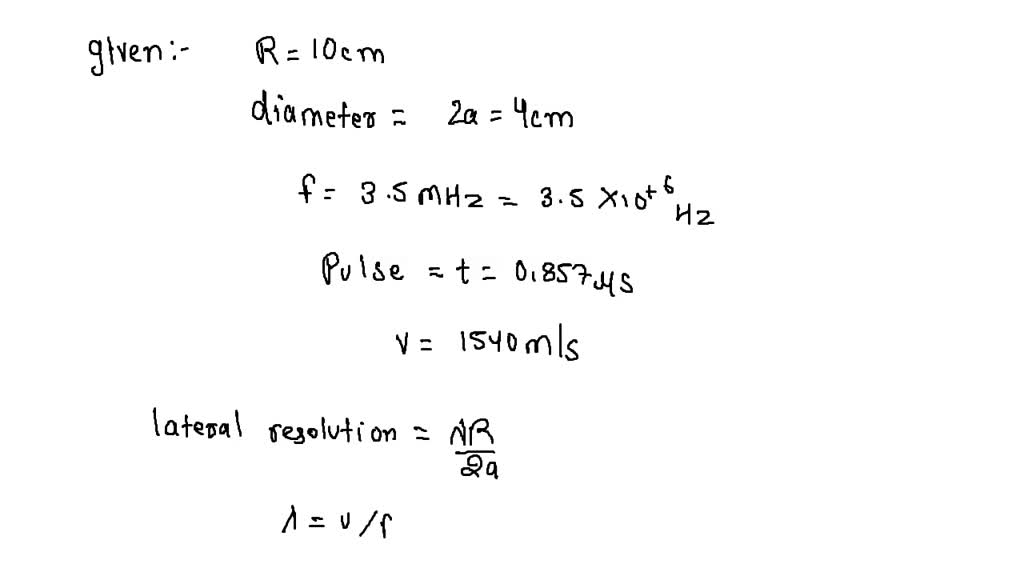 given:- R = 10cm
diameter = 2a = 4cm
f = 3.5 MHz = 3.5 × 10^+6 Hz
Pulse = t = 0.857 μs
v = 1540 m/s
lateral resolution = λR/2a
λ = v/f